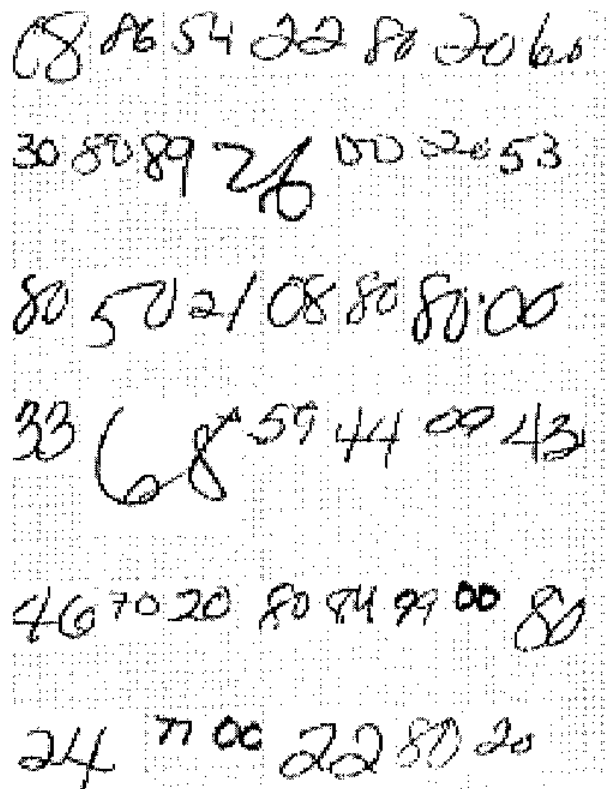 08 86 54 22 80 20 60
30 80 89 26 00 20 53
80 50 21 08 80 80 00
33 68 59 44 09 43
46 70 20 80 84 99 00 80
24 77 00 22 80 20